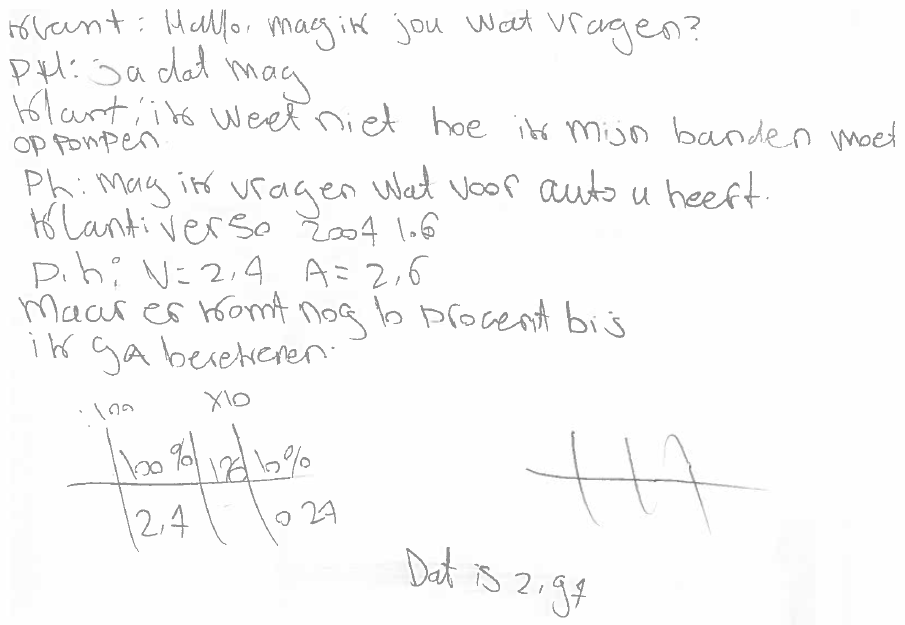 Klant: Hallo, mag ik jou wat vragen?
PH: Ja dat mag
Klant: ik weet niet hoe ik mijn banden moet
oppompen
Ph: mag ik vragen wat voor auto u heeft.
Klant: verso 2004 1.6
P.h: V=2,4 A=2,6
Maar er komt nog 10 procent bij
ik ga berekenen.
:100 x10
100% 1% 10%
2,4 0 24
Dat is 2,94